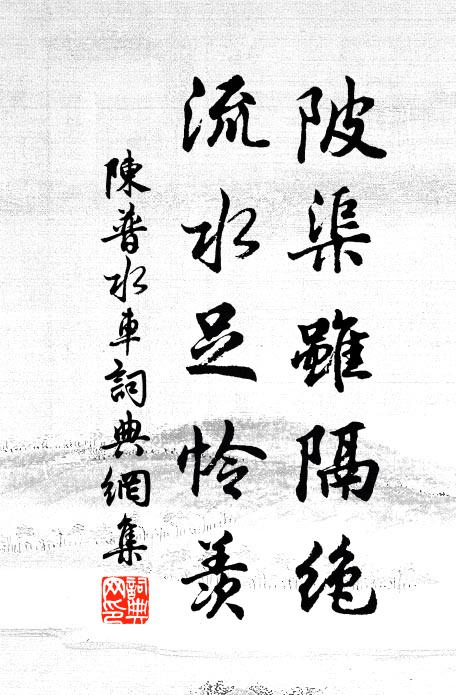 陂渠雖隔絶
流水足怜羨
陳普水車詞典網集
詞典网印